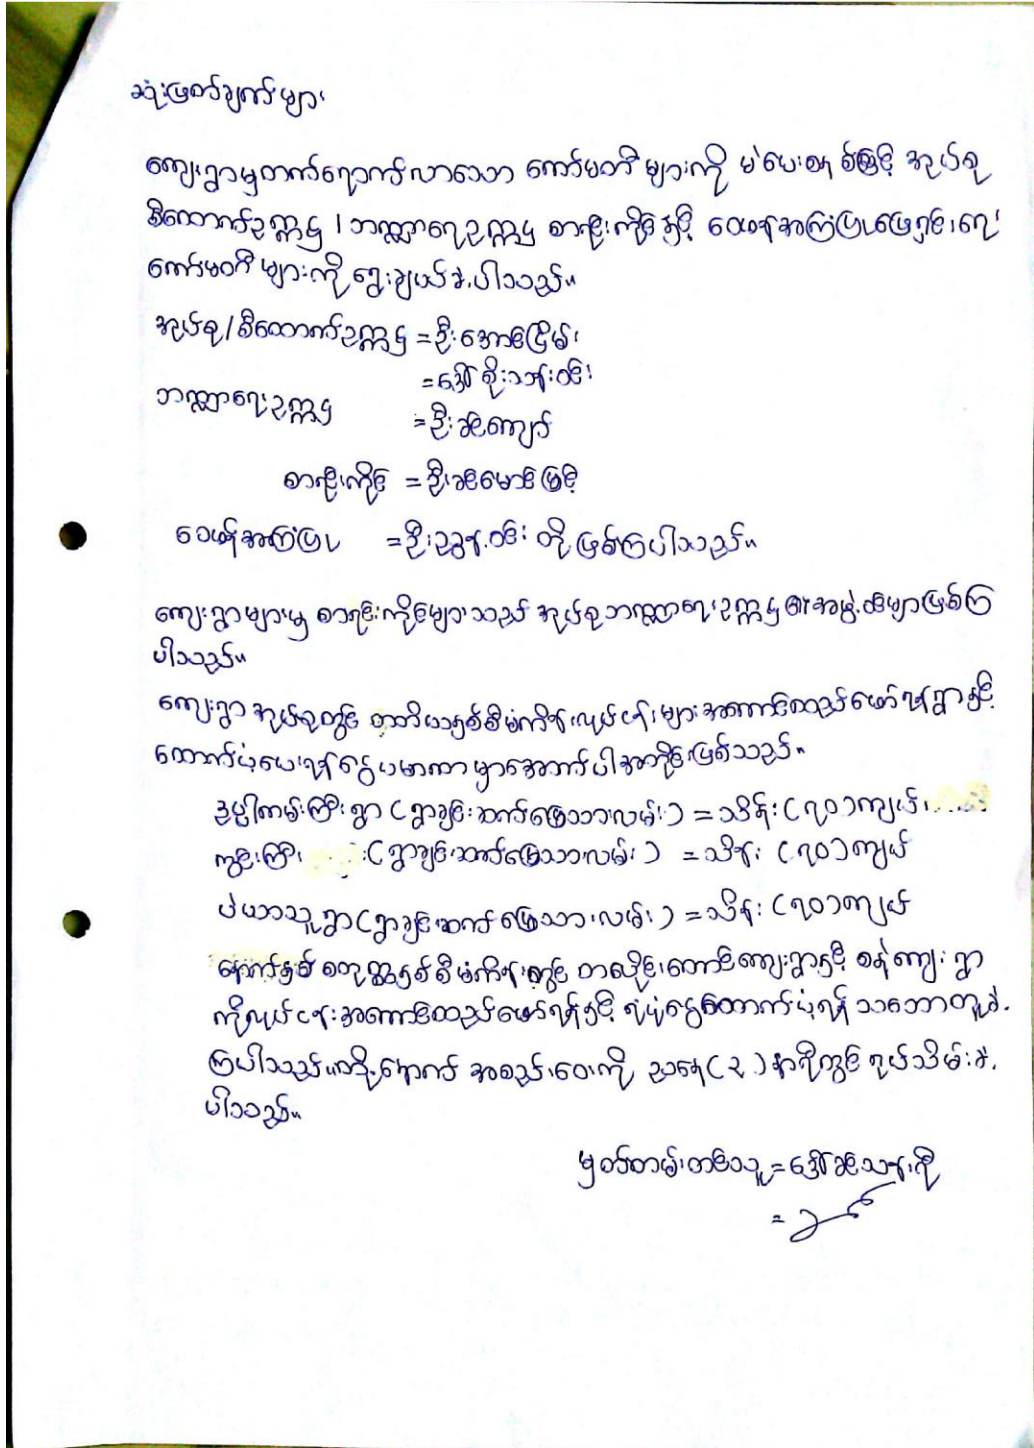 ဆုံးဖြတ်ချက်များ
ကျေးရွာမှတက်ရောက်လာသော ကော်မတီများကို မဲပေးစနစ်ဖြင့် အုပ်စု
စီထောက်ဥက္ကဌ / ဘဏ္ဍာရေးဥက္ကဌ စာရင်းကိုင်နှင့် ဝေဖန်အကြံပြုဖြေရှင်းရေး
ကော်မတီများကို ရွေးချယ်ခဲ့ပါသည်။
အုပ်စု/စီထောက်ဥက္ကဌ = ဦးအောင်ငြိမ်း
= ဒေါ်စိုးသန်းဝင်း
ဘဏ္ဍာရေးဥက္ကဌ
= ဦးခင်ကျော်
စာရင်းကိုင် = ဦးခင်မောင်မြင့်
ဝေဖန်အကြံပြု = ဦးညွန့်ဝင်း တို့ဖြစ်ကြပါသည်။
ကျေးရွာများမှ စာရင်းကိုင်များသည် အုပ်စုဘဏ္ဍာရေးဥက္ကဌ၏အဖွဲ့ဝင်များဖြစ်ကြ
ပါသည်။
ကျေးရွာအုပ်စုတွင် တတိယနှစ်စီမံကိန်းလုပ်ငန်းများအကောင်ထည်ဖော်ရန်ရွာနှင့်
ထောက်ပံ့ပေးရန်ငွေပမာဏမှာအောက်ပါအတိုင်းဖြစ်သည်။
ဒမ္ပါကမ်းကြီးရွာ (ရွာချင်းဆက်မြေသားလမ်း) = သိန်း (၇၀)ကျပ်
ကွင်းကြီး (ရွာချင်းဆက်မြေသားလမ်း) = သိန်း (၇၀)ကျပ်
ပဲယာသူရွာ (ရွာချင်းဆက်မြေသားလမ်း) = သိန်း (၇၀)ကျပ်
နောက်နှစ် စတုတ္ထနှစ်စီမံကိန်းတွင် တလိုင်းတောင်ကျေးရွာနှင့် စနဲကျေးရွာ
ကိုလုပ်ငန်းအကောင်ထည်ဖော်ရန်နှင့် ရံပုံငွေထောက်ပံ့ရန် သဘောတူခဲ့
ကြပါသည်။ထို့နောက် အစည်းဝေးကို ညနေ(၃)နာရီတွင် ရုပ်သိမ်းခဲ့
ပါသည်။
မှတ်တမ်းတင်သူ = ဒေါ်ခင်သန်းစို
=